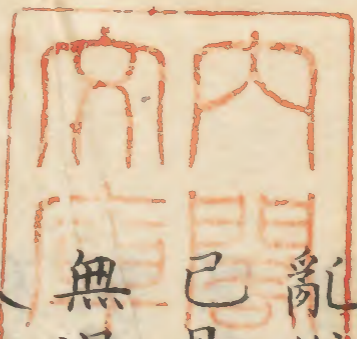 内閣
文庫
亂
已
無